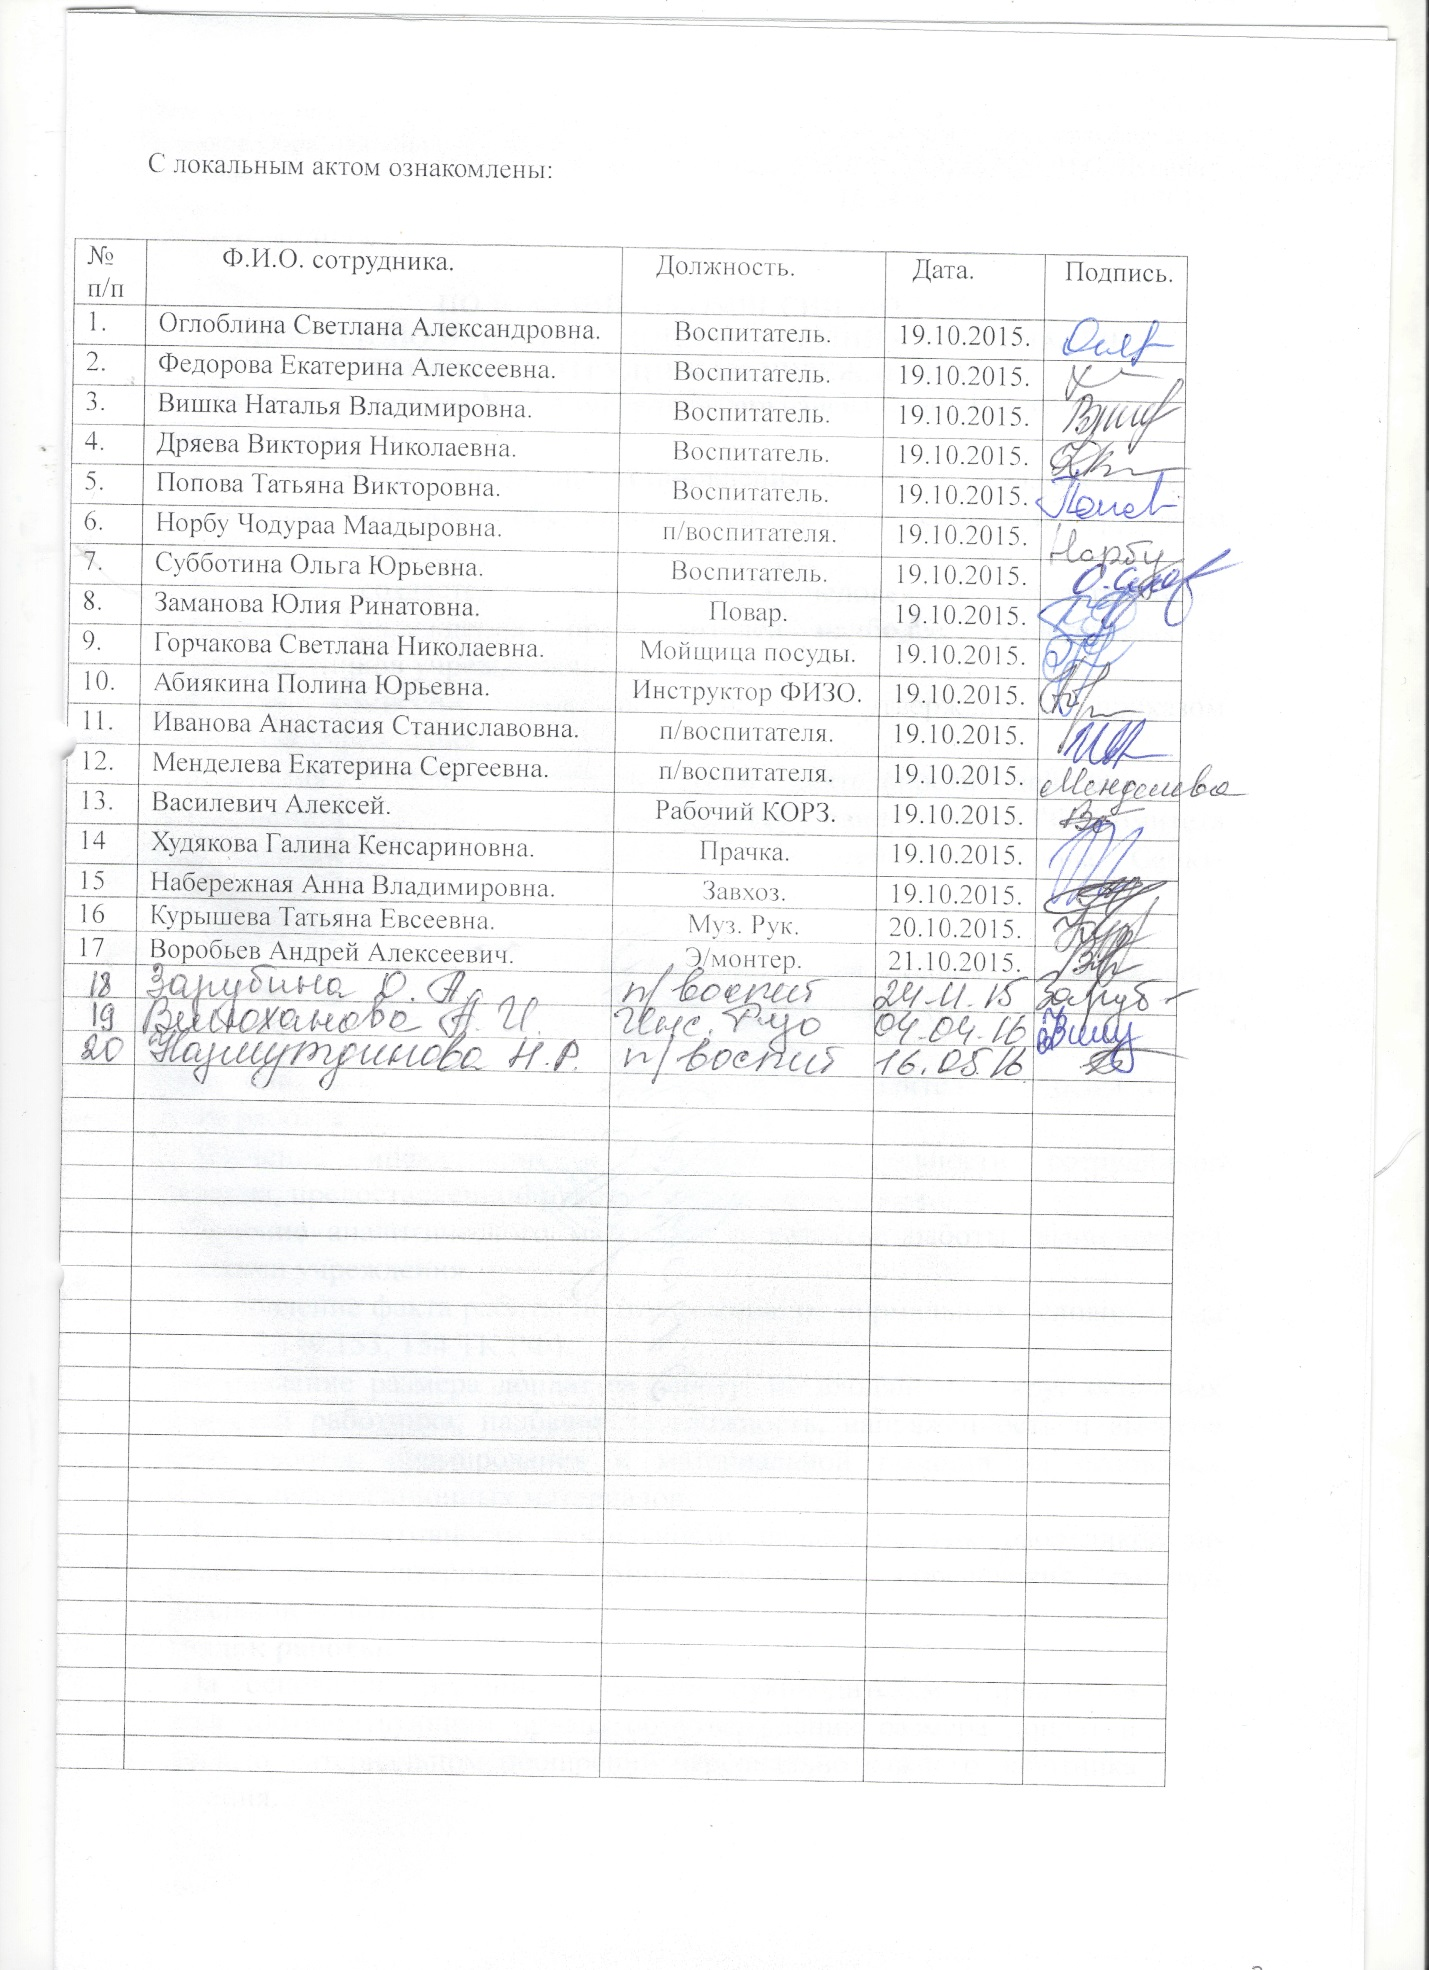 С локальным актом ознакомлены:
№ п/п Ф.И.О. сотрудника. Должность. Дата. Подпись.
1. Оглоблина Светлана Александровна. Воспитатель. 19.10.2015.
2. Федорова Екатерина Алексеевна. Воспитатель. 19.10.2015.
3. Вишка Наталья Владимировна. Воспитатель. 19.10.2015.
4. Дряева Виктория Николаевна. Воспитатель. 19.10.2015.
5. Попова Татьяна Викторовна. Воспитатель. 19.10.2015.
6. Норбу Чодураа Маадыровна. п/воспитателя. 19.10.2015. Норбу
7. Субботина Ольга Юрьевна. Воспитатель. 19.10.2015.
8. Заманова Юлия Ринатовна. Повар. 19.10.2015.
9. Горчакова Светлана Николаевна. Мойщица посуды. 19.10.2015.
10. Абиякина Полина Юрьевна. Инструктор ФИЗО. 19.10.2015.
11. Иванова Анастасия Станиславовна. п/воспитателя. 19.10.2015.
12. Менделева Екатерина Сергеевна. п/воспитателя. 19.10.2015. Менделева
13. Василевич Алексей. Рабочий КОРЗ. 19.10.2015.
14 Худякова Галина Кенсариновна. Прачка. 19.10.2015.
15 Набережная Анна Владимировна. Завхоз. 19.10.2015.
16 Курышева Татьяна Евсеевна. Муз. Рук. 20.10.2015.
17 Воробьев Андрей Алексеевич. Э/монтер. 21.10.2015.
18 Зарубина О. А. п/воспит 24.11.15 Заруб
19 А. И. 04.04.16
20 Назмутдинова Н.Р. п/воспит 16.05.16